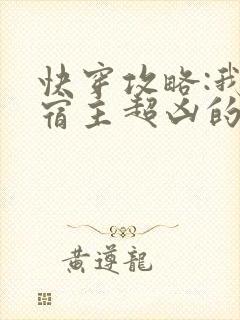 快穿攻略:我
宿主超凶的
黄遵龍